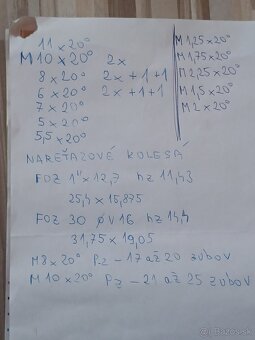 11 x 20°
M10 x 20° 2x
8 x 20° 2x +1+1
6 x 20° 2x +1+1
7 x 20°
5 x 20°
5,5 x 20°
M1,25 x 20°
M1,75 x 20°
M2,25 x 20°
M1,5 x 20°
M2 x 20°
NAREŤAZOVÉ KOLESÁ
FOZ 1" x 12,7 hz 11,43
25,4 x 15,875
FOZ 30 ØV16 hz 14,4
31,75 x 19,05
M8 x 20° Pz - 17 až 20 zubov
M10 x 20° Pz - 21 až 25 zubov